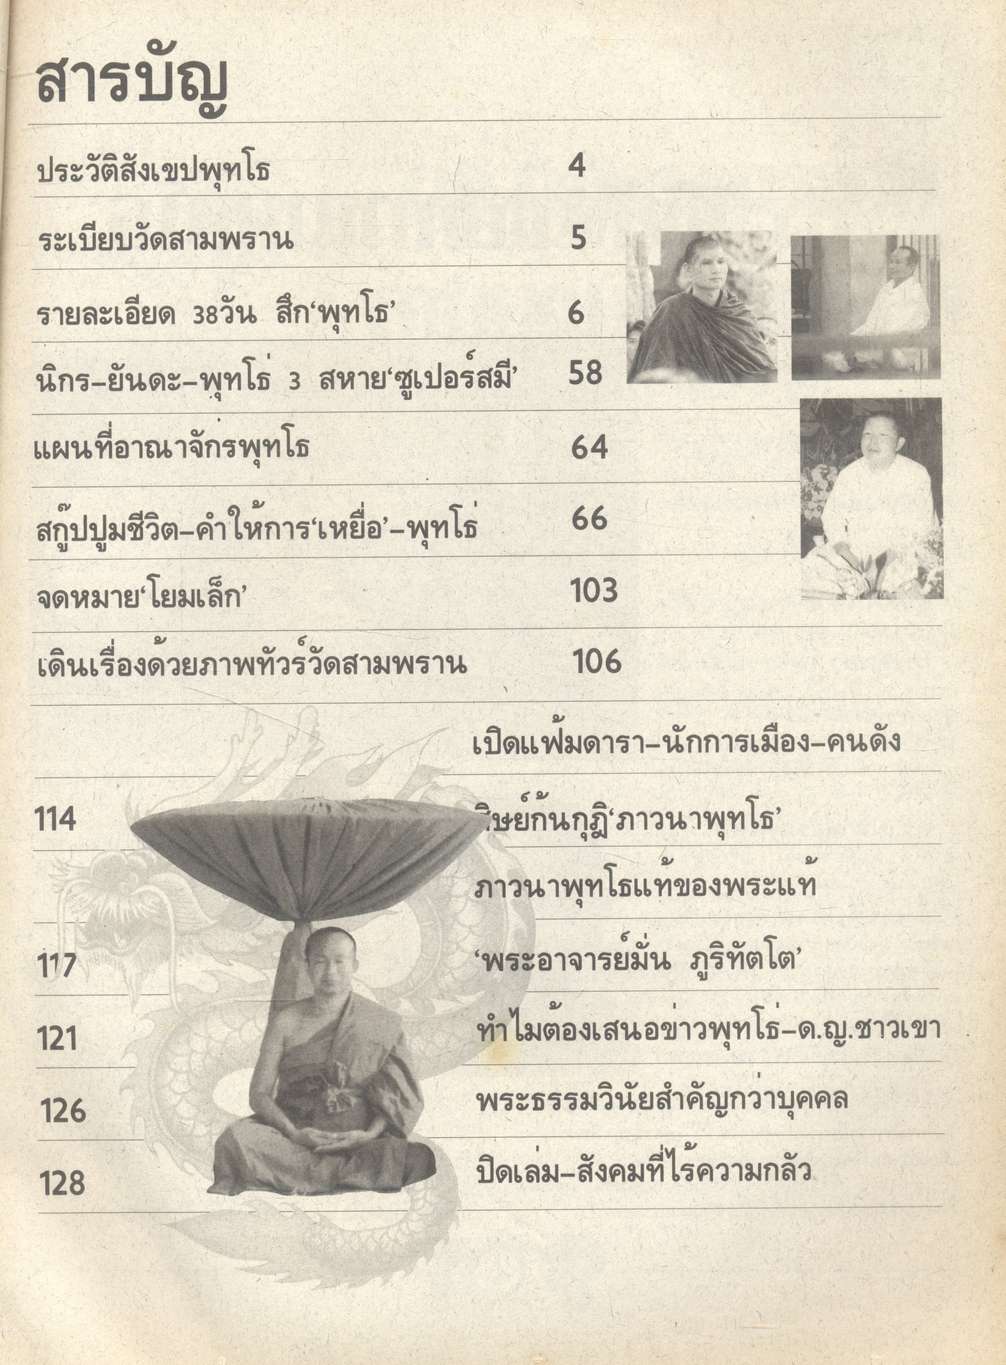 สารบัญ
ประวัติสังเขปพุทโธ 4
ระเบียบวัดสามพราน 5
รายละเอียด 38วัน สึก‘พุทโธ’ 6
นิกร-ยันดะ-พุทโธ่ 3 สหาย‘ซูเปอร์สมี’ 58
แผนที่อาณาจักรพุทโธ 64
สกู๊ปปูมชีวิต-คำให้การ‘เหยื่อ’-พุทโธ่ 66
จดหมาย‘โยมเล็ก’ 103
เดินเรื่องด้วยภาพทัวร์วัดสามพราน 106
เปิดแฟ้มดารา-นักการเมือง-คนดัง
114 ศิษย์ก้นกุฏิ‘ภาวนาพุทโธ’
ภาวนาพุทโธแท้ของพระแท้
117 ‘พระอาจารย์มั่น ภูริทัตโต’
121 ทำไมต้องเสนอข่าวพุทโธ่-ด.ญ.ชาวเขา
126 พระธรรมวินัยสำคัญกว่าบุคคล
128 ปิดเล่ม-สังคมที่ไร้ความกลัว